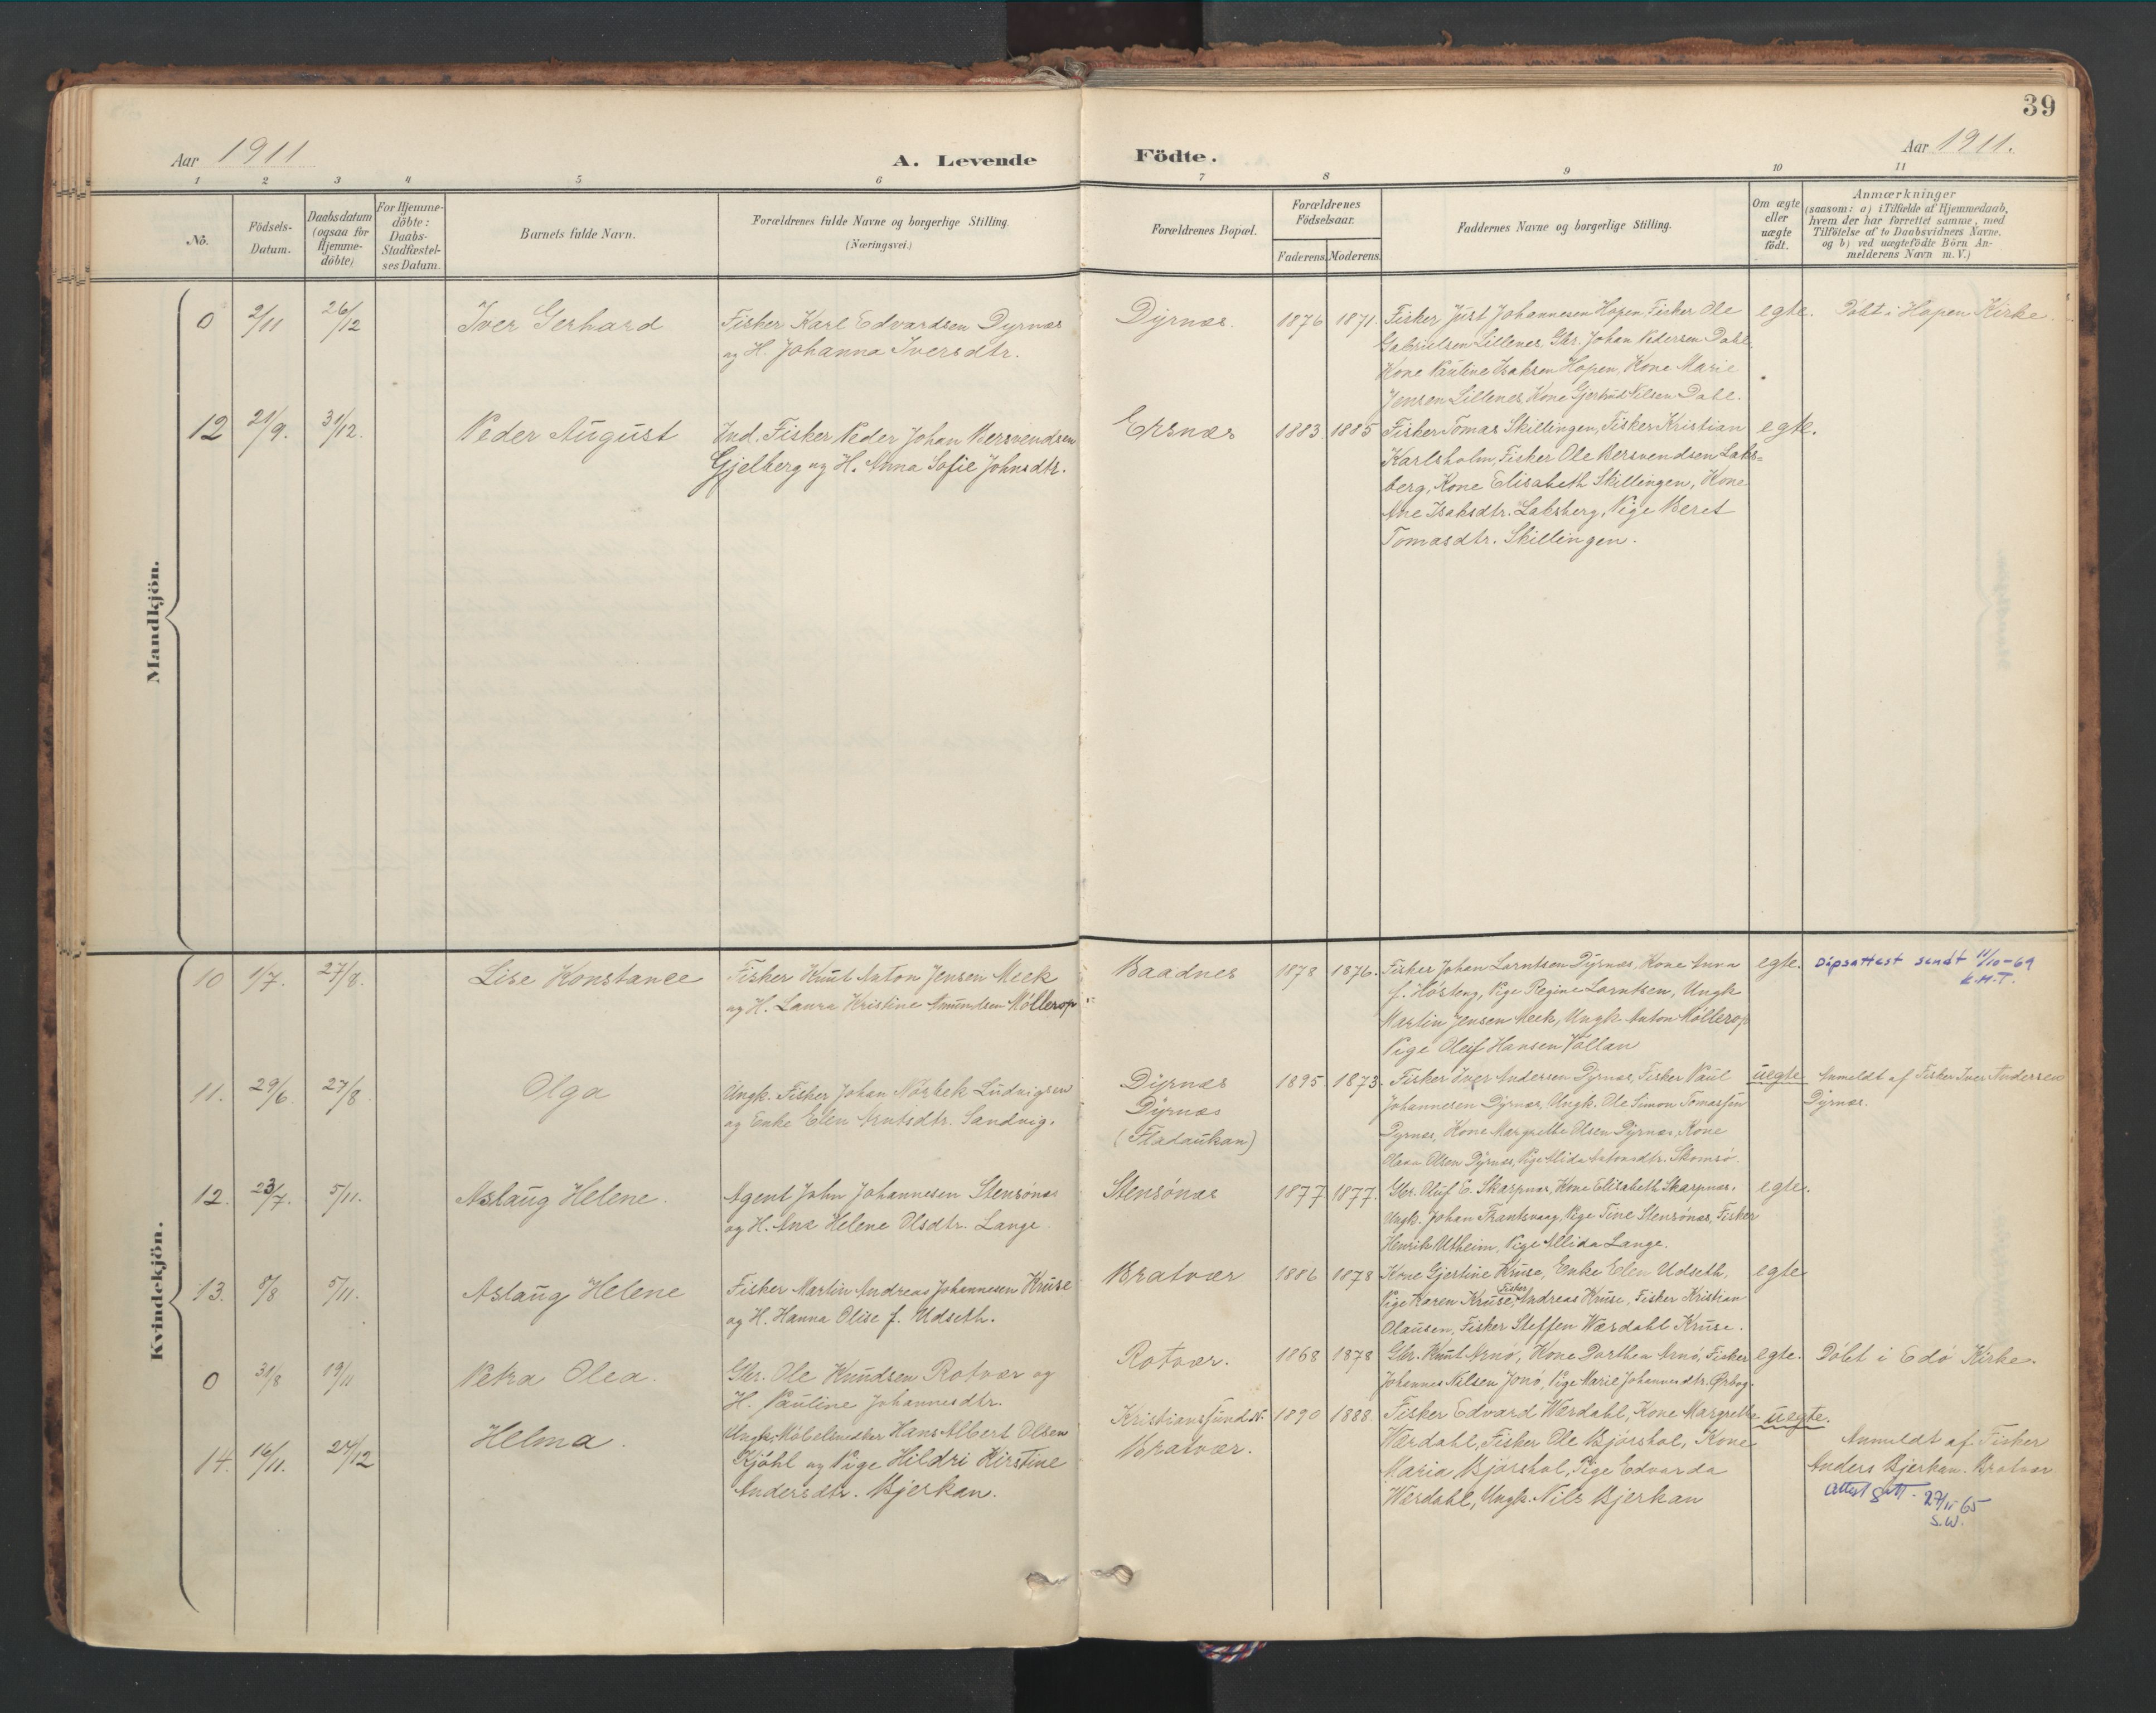 39
Aar 1911
A. Levende
Födte.
Aar 1911.
1 2 3 4 5 6 7 8 9 10 11
No.
Födsels-
Datum.
Daabsdatum
(ogsaa for
Hjemme-
döbte)
For Hjemme-
döbte:
Daabs-
Stadfæstel-
ses Datum.
Barnets fulde Navn.
Forældrenes fulde Navne og borgerlige Stilling.
(Næringsvei.)
Forældrenes Bopæl.
Forældrenes
Födselsaar.
Faderens. Moderens.
Faddernes Navne og borgerlige Stilling.
Om ægte
eller
uægte
födt.
Anmærkninger
(saasom: a) i Tilfælde af Hjemmedaab,
hvem der har forrettet samme, med
Tilföielse af to Daabsvidners Navne.
og b) ved uægtefödte Börn An-
melderens Navn m. V.)
Mandkjön.
0 2/11 26/12 Iver Gerhard
Fisker Karl Edvardsen Dyrnæs
og H. Johanna Iversdtr.
Dyrnæs. 1876 1871.
Fisker Just Johannesen Hopen, Fisker Ole
Gabrielsen Lillenes, Gbr. Johan Pedersen Dahl,
Kone Pauline Isaksen Hopen, Kone Marie
Jensen Lillenes, Kone Gjertrud Nilsen Dahl.
egte. Döbt i Hopen Kirke.
12 21/9. 31/12. Peder August
Ind. Fisker Peder Johan Bersvendsen
Gjelberg og H. Anna Sofie Johnsdtr.
Ersnæs 1883 1885
Fisker Tomas Skillingen, Fisker Kristian
Karlsholm, Fisker Ole Bersvendsen Laks=
berg, Kone Elisabeth Skillingen, Kone
Ane Isaksdtr. Laksberg, Pige Beret
Tomasdtr. Skillingen.
egte.
Kvindekjön.
10 1/7. 27/8. Lise Konstance
Fisker Knut Anton Jensen Meek
og H. Laura Kristine Amundsen Möllerop
Baadnes 1878 1876.
Fisker Johan Larntsen Dyrnæs, Kone Anna
f. Hösteng, Pige Regine Larntsen, Ungk.
Martin Jensen Meek, Ungk. Anton Möllerop
Pige Oleif Hansen Vollan
egte. Dåpsattest sendt 11/10-69
K.H.T.
11. 29/6. 27/8. Olga
Ungk. Fisker Johan Norbek Ludvigsen
og Enke Elen Arntsdtr. Sandvig.
Dyrnæs
Dyrnæs
(Fladaukan)
1895. 1873.
Fisker Iver Andersen Dyrnæs, Fisker Paul
Johannesen Dyrnæs, Ungk. Ole Simon Tomassen
Dyrnæs, Kone Margrethe Olsen Dyrnæs, Kone
Olava Olsen Dyrnæs, Pige Alida Antonsdtr. Skomsö.
uegte Anmeldt af Fisker Iver Andersen
Dyrnæs.
12. 23/7. 5/11. Aslaug Helene.
Agent John Johannesen Stensönæs
og H. Ane Helene Olsdtr. Lange.
Stensönæs 1877 1877.
Gbr. Oluf E. Skarpnæs, Kone Elisabeth Skarpnæs,
Ungk. Johan Frantsvaag, Pige Tine Stensönæs, Fisker
Henrik Utheim, Pige Alida Lange.
egte.
13. 8/8 5/11. Aslaug Helene
Fisker Martin Andreas Johannesen Kruse
og H. Hanna Olise f. Udseth.
Bratvær 1886 1878
Kone Gjertine Kruse, Enke Elen Udseth,
Pige Karen Kruse, Fisker Andreas Kruse, Fisker Kristian
Olausen, Fisker Steffen Wærdahl Kruse.
egte
0 31/8 19/11 Petra Olea.
Gbr. Ole Knudsen Rotvær og
H. Pauline Johannesdtr.
Rotvær. 1868 1878
Gbr. Knut Arnö, Kone Dorthea Arnö, Fisker
Johannes Nilsen Jonö, Pige Marie Johannesdtr. Ørbog.
egte. Döbt i Edö Kirke.
14. 16/11. 24/12 Helma.
Ungk. Möbelsnedker Hans Albert Olsen
Kjöhl og Pige Hildri Kirstine
Andersdtr. Bjerkan.
Kristiansund N.
Bratvær.
1890 1888.
Fisker Edvard Wærdahl, Kone Margrethe
Wærdahl, Fisker Ole Björshol, Kone
Maria Bjorshol, Pige Edvarda
Wærdahl, Ungk. Nils Bjerkan
uegte.
Anmeldt af Fisker
Anders Bjerkan. Bratvær
Attest gitt. 27/11-65
S.W.